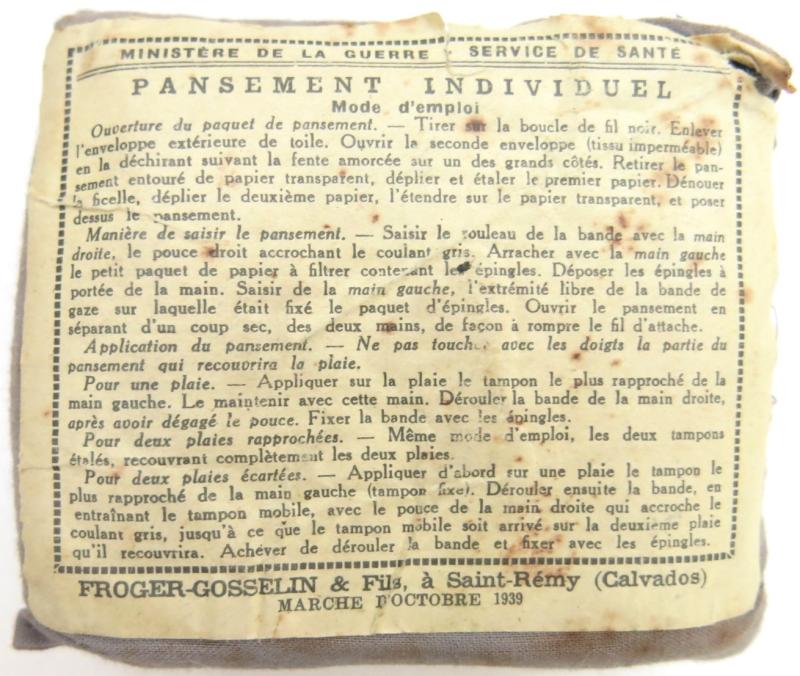 MINISTÈRE DE LA GUERRE - SERVICE DE SANTÉ
PANSEMENT INDIVIDUEL
Mode d'emploi
Ouverture du paquet de pansement. — Tirer sur la boucle de fil noir. Enlever
l'enveloppe extérieure de toile. Ouvrir la seconde enveloppe (tissu imperméable)
en la déchirant suivant la fente amorcée sur un des grands côtés. Retirer le pan-
sement entouré de papier transparent, déplier et étaler le premier papier. Dénouer
la ficelle, déplier le deuxième papier, l'étendre sur le papier transparent, et poser
dessus le pansement.
Manière de saisir le pansement. — Saisir le rouleau de la bande avec la main
droite, le pouce droit accrochant le coulant gris. Arracher avec la main gauche
le petit paquet de papier à filtrer contenant les épingles. Déposer les épingles à
portée de la main. Saisir de la main gauche, l'extrémité libre de la bande de
gaze sur laquelle était fixé le paquet d'épingles. Ouvrir le pansement en
séparant d'un coup sec, des deux mains, de façon à rompre le fil d'attache.
Application du pansement. — Ne pas toucher avec les doigts la partie du
pansement qui recouvrira la plaie.
Pour une plaie. — Appliquer sur la plaie le tampon le plus rapproché de la
main gauche. Le maintenir avec cette main. Dérouler la bande de la main droite,
après avoir dégagé le pouce. Fixer la bande avec les épingles.
Pour deux plaies rapprochées. — Même mode d'emploi, les deux tampons
étalés, recouvrant complètement les deux plaies.
Pour deux plaies écartées. — Appliquer d'abord sur une plaie le tampon le
plus rapproché de la main gauche (tampon fixe). Dérouler ensuite la bande, en
entraînant le tampon mobile, avec le pouce de la main droite qui accroche le
coulant gris, jusqu'à ce que le tampon mobile soit arrivé sur la deuxième plaie
qu'il recouvrira. Achever de dérouler la bande et fixer avec les épingles.
FROGER-GOSSELIN & Fils, à Saint-Rémy (Calvados)
MARCHE D'OCTOBRE 1939